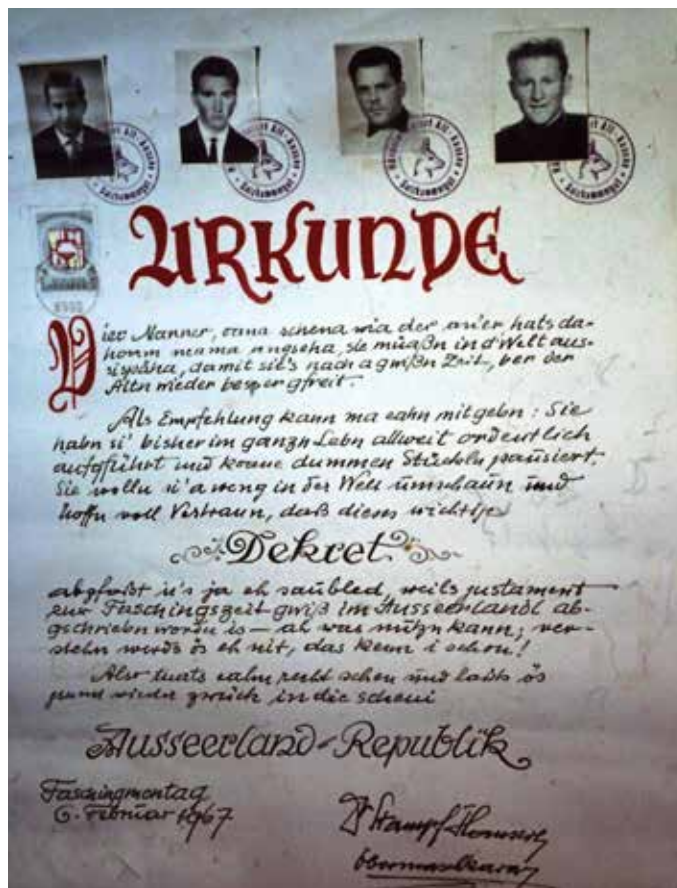 URKUNDE
Vier Manner, oana schena wia der hats da-
homm nuama angseha, sie müaßn in d'Welt aus-
damit sie's nach a gwißn Zeit, ber der
Altn wieder besser gfreit.
Als Empfehlung kann ma eahn mitgebn: Sie
habn si' bisher im ganzn Lebn allweil ordentlich
aufgführt und koane dummen Stückln passiert.
Sie wolln si' a weng in der Welt umschaun und
hoffn voll Vertraun, daß diens wichtige
Dekret
abgfaßt is's ja eh saubled, weils justament
zur Faschingszeit gwiß im Ausseerlandl ab-
gschriebn wordn is – ah was nutzn kann, ver-
stehn werds ös eh nit, das kenn i schon!
Also tuats eahm recht schen und laßts ös
wieda zruck in die scheni
Ausseerland-Republik
Faschingmontag
6. Februar 1967